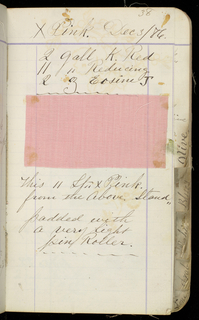 38
X Pink. Dec 3/86.
2 Gall K. Red
11 " Reducing
2 Eosine J.
This 11 X Pink
from the Above Stand
padded with
a very light
pin Roller.
Olive